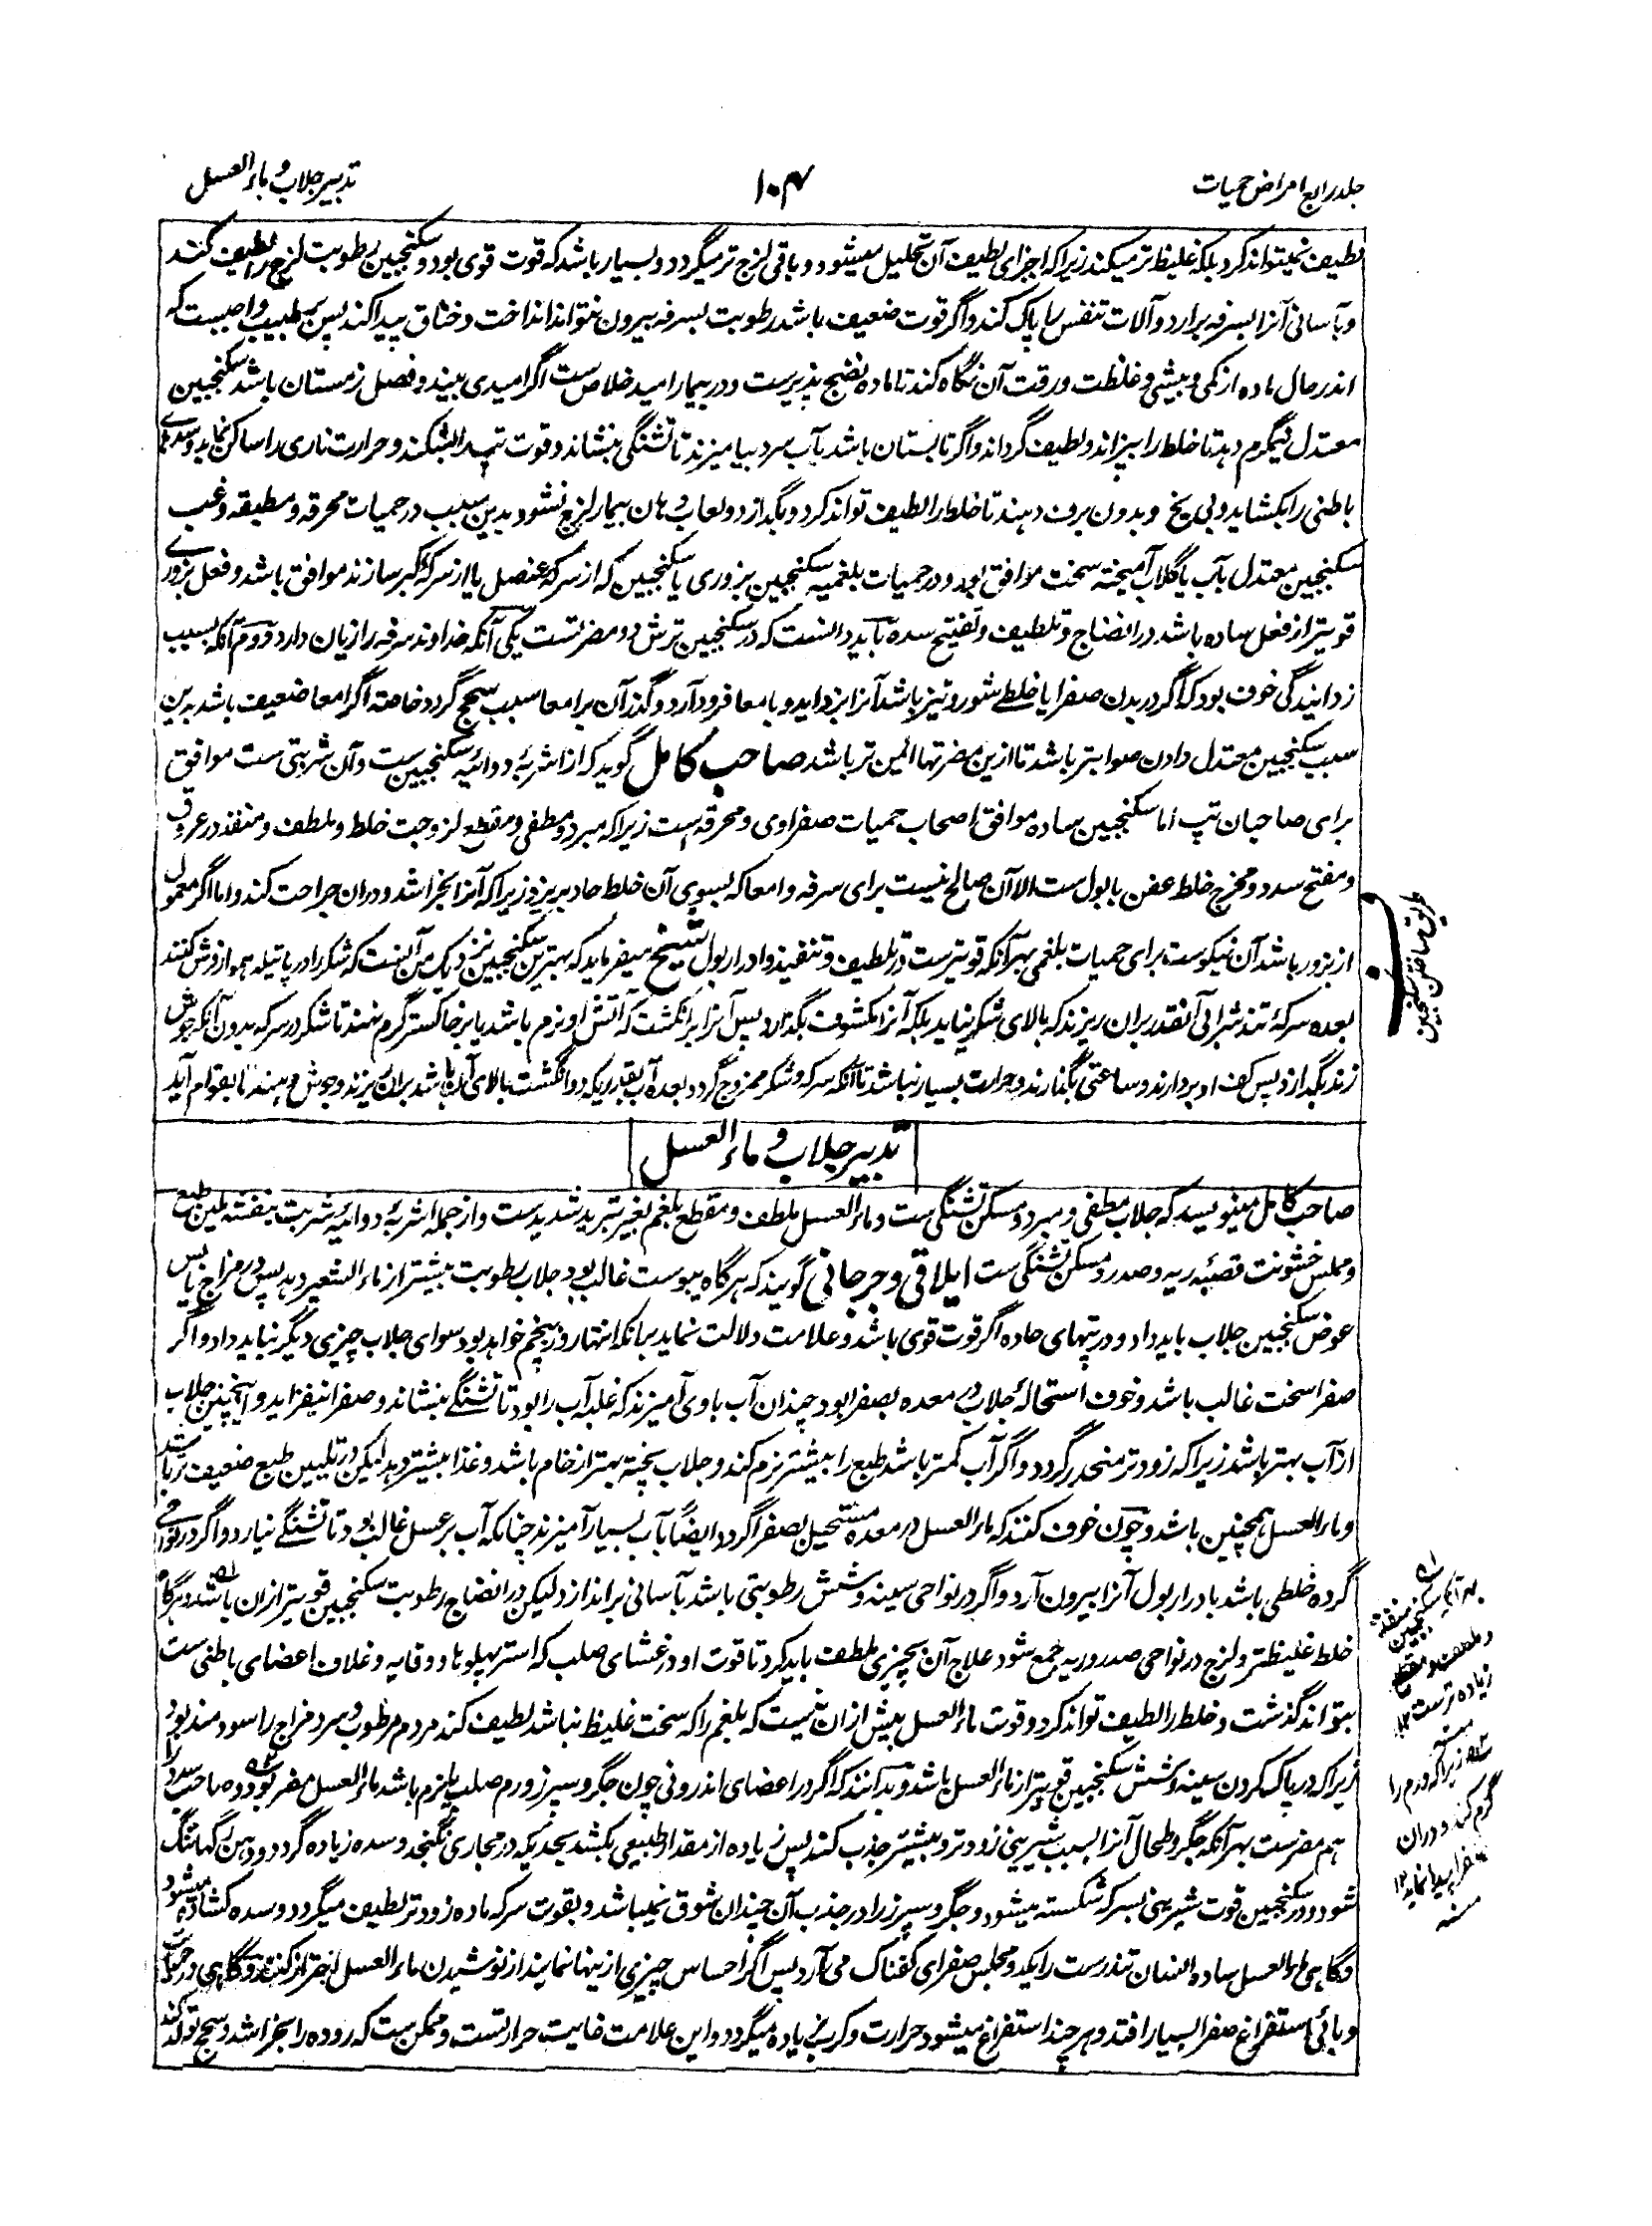 جلد رابع امراض حمیات
۱۰۴
تدبیر جلاب و ماء العسل
لطیف نمیتواند کرد بلکه غلیظ تر میکند زیرا که اجزای لطیف آن تحلیل میشود و باقی لزج تر میگردد و بسیار باشد که قوت قوی بود و سکنجبین رطوبت لزج را لطیف کند
و بآسانی آنرا بسرفه برارد و آلات تنفس را پاک کند و اگر قوت ضعیف باشد رطوبت بسرفه بیرون نتواند انداخت و خناق پیدا کند پس بر طبیب واجبست که
اندر حال ماده از کمی و بیشی و غلظت و رقت آن نگاه کند تا ماده نضج پذیرست و در بیمار امید خلاص ست اگر امیدی بیند و فصل زمستان باشد سکنجبین
معتدل نیگرم دهد تا خلط را بپزاند و لطیف گرداند و اگر تابستان باشد بآب سرد بیامیزند تا تشنگی بنشاند و قوت تپ را بشکند و حرارت ناری را ساکن نماید و سدهٔ
باطنی را بکشاید و بی یخ و بدون برف دهند تا خلط را لطیف تواند کرد و بگدازد و لعاب دهان بیمار لزج نشود بدین سبب در حمیات محرقه و مطبقه و غب
سکنجبین معتدل بآب یا گلاب آمیخته سخت موافق بود و در حمیات بلغمیه سکنجبین بزوری یا سکنجبین که از سرکهٔ عنصل یا از سرکهٔ کبر سازند موافق باشد و فعل بزوری
قویتر از فعل ساده باشد در انضاج و تلطیف و تفتیح سده باید دانست که در سکنجبین ترش دو مضرتست یکی آنکه خداوند سرفه را زیان دارد دوم آنکه بسبب
زدایندگی خوف بود که اگر در بدن صفرا یا خلط شور و تیز باشد آنرا بزداید و بامعا فرود آرد و گذر آن بر امعا سبب سحج گردد خاصه اگر امعا ضعیف باشد بدین
سبب سکنجبین معتدل دادن صوابتر باشد تا ازین مضرتها ایمن تر باشد صاحب کامل گوید که از اشربهٔ دوائیه سکنجبین ست و آن شربتی ست موافق
برای صاحبان تپ اما سکنجبین ساده موافق اصحاب حمیات صفراوی و محرقه است زیرا که مبرد و مطفی و مقطع لزوجت خلط و ملطف و منفذ در عروق
و مفتح سدد و مخرج خلط عفن با بول ست الا آن صالح نیست برای سرفه و امعا که بسوی آن خلط حاد بریزد زیرا که آنرا بخراشد و دران جراحت کند و اما اگر معمول
از بزور باشد آن نیکوست برای حمیات بلغمی بهر آنکه قویترست در تلطیف و تنفیذ و ادرار بول شیخ میفرماید که بهترین سکنجبین نزدیک من آنست که شکر را در پاتیله هموار فرش کنند
بعده سرکهٔ تند شرابی آنقدر بران ریزند که بالای شکر نیاید بلکه آنرا مکشوف بگذارد پس آنرا بر انگشت که آتش او نرم باشد یا بر خاکستر گرم نهند تا شکر در سرکه بدون آنکه جوش
زند بگدازد پس کف او بردارند و ساعتی بگذارند و حرارت بسیار نباشد تا آنکه سرکه و شکر ممزوج گردد بعده آب بقدریکه دو انگشت بالای آن باشد بران ریزند و جوش دهند تا بقوام آید
طریق ساختن سکنجبین
تدبیر جلاب و ماء العسل
صاحب کامل مینویسد که جلاب مطفی و مبرد و مسکن تشنگی ست و ماء العسل ملطف و مقطع بلغم بغیر تبرید شدیدست و از جمله اشربهٔ دوائیه شربت بنفشه ملین طبع
و مملس خشونت قصبهٔ ریه و صدر و مسکن تشنگی ست ایلاقی و جرجانی گویند که هرگاه یبوست غالب بود جلاب رطوبت بیشتر از ماء الشعیر دهد پس در مزاج یابس
عوض سکنجبین جلاب باید داد و در تپهای حاده اگر قوت قوی باشد و علامت دلالت نماید برانکه انتها روز پنجم خواهد بود سوای جلاب چیزی دیگر نباید داد و اگر
صفرا سخت غالب باشد و خوف استحالهٔ جلاب در معده بصفرا بود چندان آب باوی آمیزند که غلبه آب را بود تا تشنگی بنشاند و صفرا نیفزاید و اینچنین جلاب
از آب بهتر باشد زیرا که زودتر منحدر گردد و اگر آب کمتر باشد طبع را بیشتر نرم کند و جلاب پخته بهتر از خام باشد و غذا بیشتر دهد لیکن در تلیین طبع ضعیف تر باشد
و ماء العسل همچنین باشد و چون خوف کنند که ماء العسل در معده مستحیل بصفرا گردد ایضاً بآب بسیار آمیزند چنانکه آب بر عسل غالب بود تا تشنگی نیارد و اگر در نواحی
گرده خلطی باشد بادرار بول آنرا بیرون آرد و اگر در نواحی سینه و شش رطوبتی باشد بآسانی براندازد لیکن در انضاج رطوبت سکنجبین قویتر ازان باشد و هرگاه
خلط غلیظتر و لزج در نواحی صدر و ریه جمع شود علاج آن بچیزی ملطف باید کرد تا قوت او در غشای صلب که استر پهلوها و وقایه و غلاف اعضای باطنی ست
بتواند گذشت و خلط را لطیف تواند کرد و قوت ماء العسل بیش ازان نیست که بلغم را که سخت غلیظ نباشد لطیف کند مردم مرطوب و سرد مزاج را سودمند بود
زیرا که در پاک کردن سینه و شش سکنجبین قویتر از ماء العسل باشد و بدانند که اگر در اعضای اندرونی چون جگر و سپرز ورم صلب یا نرم باشد ماء العسل مضر بود و صاحب سدد را
هم مضرست بهر آنکه جگر و طحال آنرا بسبب شیرینی زودتر و بیشتر جذب کنند پس زیاده از مقدار طبیعی بکشد بحدیکه در مجاری نگنجد و سده زیاده گردد و دهن رگها تنگ
شود و در سکنجبین قوت شیرینی بسرکه شکسته میشود و جگر و سپرز را در جذب آن چندان شوق نمیباشد و بقوت سرکه ماده زودتر لطیف میگردد و سده کشاده میشود
و گاهی ماء العسل ساده انسان تندرست را بکد و مجلس صفرای کفناک می آرد پس اگر احساس چیزی ازینها نمایند از نوشیدن ماء العسل احتراز کنند و گاهی در حمیات
وبائی استفراغ صفرا بسیار افتد و هر چند استفراغ میشود حرارت و کرب زیاده میگردد و این علامت غایت حرارتست و ممکن ست که روده را بخراشد و سحج تولد کند
بهر آنکه سکنجبین منفذ
و ملطف و مقطع
زیاده ترست ۱۲
منه
زیرا که ورم را
گرم کند و دران
صفرا پیدا نماید ۱۲
منه